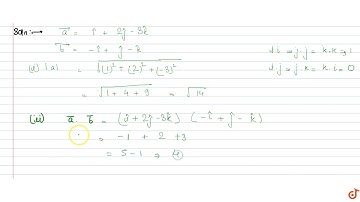 Soln:→ a⃗ = î + 2ĵ - 3k̂
b⃗ = -î + ĵ - k̂ î.i = j.j = k.k = 1
(i) |a| = √((1)² + (2)² + (-3)²) i.j = j.k = k.i = 0
= √(1 + 4 + 9) = √14
(ii) a⃗. b⃗ = (î + 2ĵ - 3k̂) (-î + ĵ - k̂)
= -1 + 2 + 3
= 5 - 1 ⇒ 4